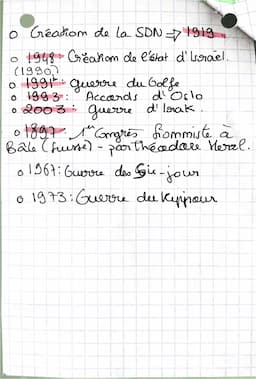 o Création de la SDN ⇒ 1919
o 1948 Création de l'état d'Israël.
(1990)
o 1991 : guerre du Golfe
o 1993 : Accords d'Oslo
o 2003 : guerre d'Irak.
o 1897 : 1er Congrès Sionniste à
Bâle (Suisse) - par Théodore Herzl.
o 1967 : Guerre des Six-jour
o 1973 : Guerre du Kippour